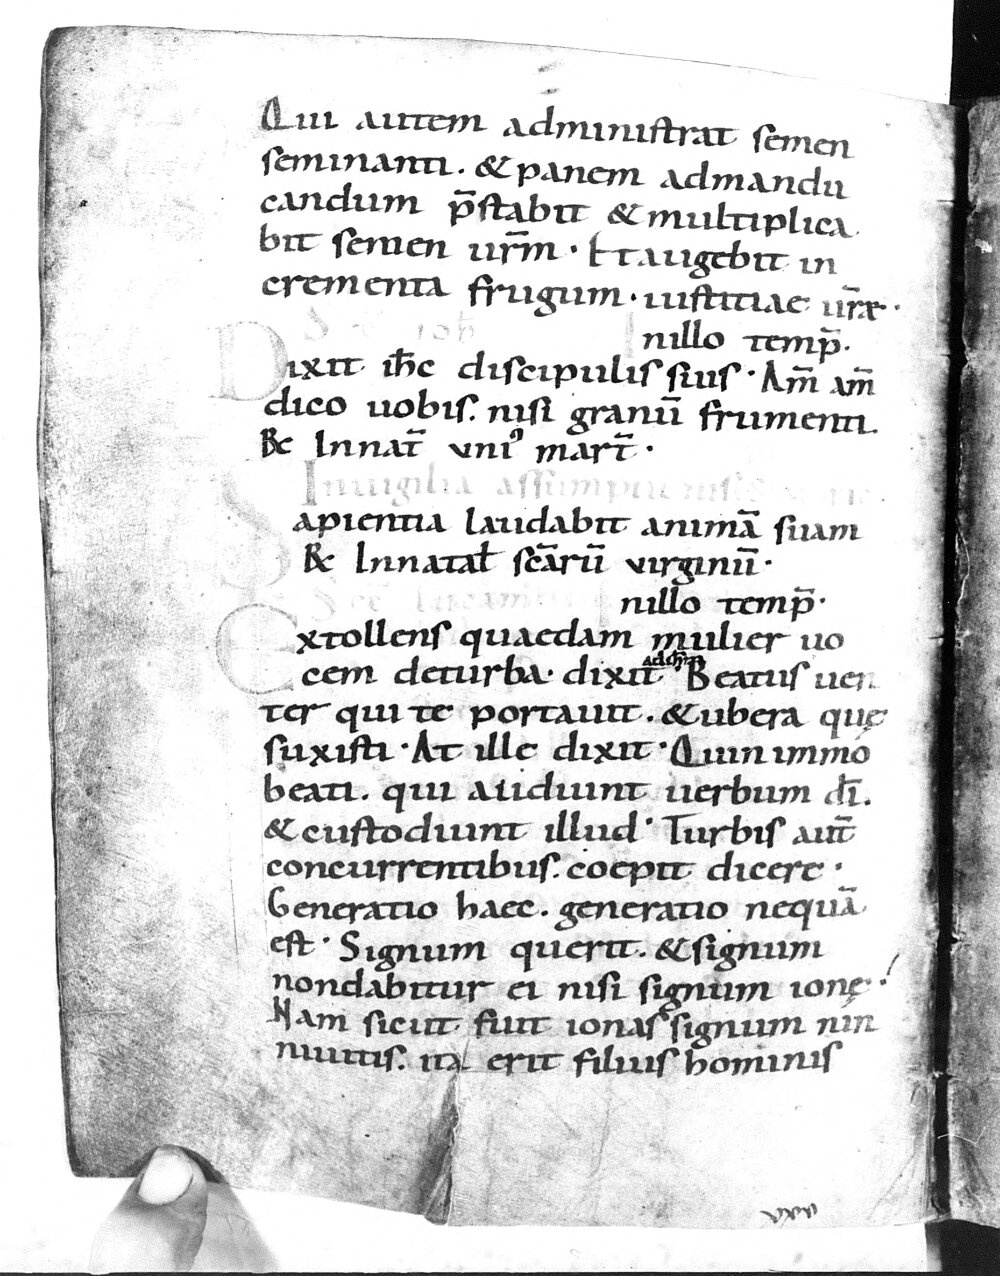 Qui autem administrat semen
seminanti. & panem admandu
candum p̄stabit & multiplica
bit semen ur̄m · Et augebit in
crementa frugum · iustitiae ur̄ae ·
S̄ ioh̄ I
nillo temp̄.
Dixit ih̄c discipulis suis · Am̄ am̄
dico uobis. nisi granū frumenti.
Rc Innat̄ uniꝰ mart̄ ·
In uigilia assumptionis
Sapientia laudabit animā suam
Rc Innatał sc̄arū virginū ·
Sc̄e lucam
nillo temp̄ ·
Extollens quaedam mulier uo
ad ch̄m
cem deturba · dixit Beatus uen
ter qui te portauit. & ubera quę
suxisti · At ille dixit · Quin immo
beati. qui audiunt uerbum dī.
& custodiunt illud · Turbis aut̄
concurrentibus. coepit dicere ·
Generatio haec. generatio nequā
est · Signum querit. & signum
nondabitur ei nisi signum ionę ·
Nam sicut fuit ionas signum nin
niuitis. ita erit filius hominis